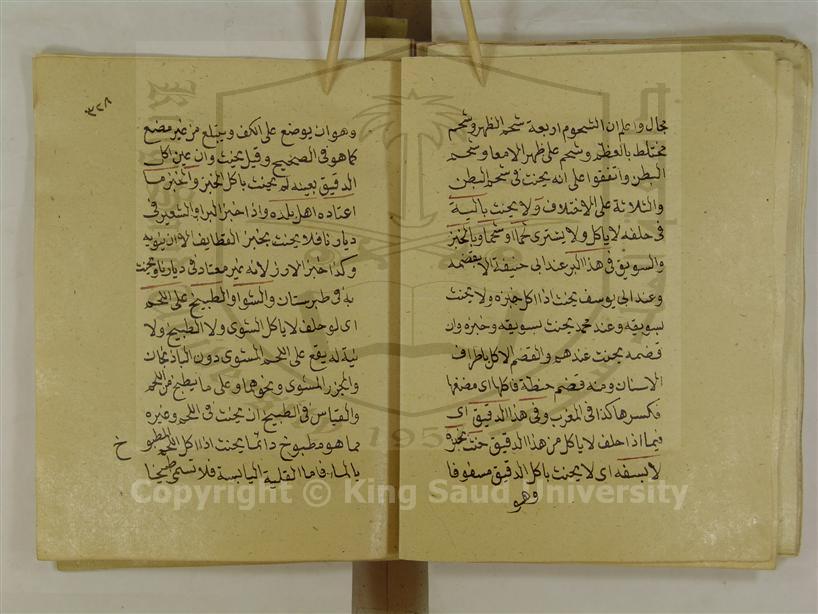 مجال واعلم ان الشحوم اربعة شحم الظهر وشحم
مختلط بالعظم وشحم على ظهر الامعا وشحم
البطن واتفقوا على انه يحنث فى شحم البطن
والثلاثة على الاختلاف ولا يحنث بالية
فى حلفه لا ياكل ولا يشترى لحما او شحما وبالخبز
والسويق فى هذا البر عند ابى حنيفة الا بقضمه
وعند ابى يوسف يحنث اذا اكل خبزه ولا يحنث
بسويقه وعند محمد يحنث بسويقه وخبزه وان
قضمه يحنث عندهم والقضم الاكل باطراف
الاسنان ومنه قضم حنطة فاكلها اى مضغها
فكسرها كذا فى المغرب وفى هذا الدقيق اى
فيما اذا حلف لا ياكل من هذا الدقيق حنث بخبزه
لا بسفه اى لا يحنث باكل الدقيق مسفوفا
وهو
وهو ان يوضع على الكف ويبتلع من غير مضغ
كما هو فى الصحيح وقيل يحنث وان عين اكل
الدقيق بعينه لم يحنث باكل الخبز والخبز ما
اعتاده اهل بلده واذا خبز البر او الشعير فى
ديارنا فلا يحنث بخبز القطايف الا ان ينويه
وكذا خبز الارز لانه غير معتاد فى ديارنا ويحنث
به فى طبرستان والشوا والطبيخ على اللحم
اى لو حلف لا ياكل الشوى ولا الطبيخ ولا
نية له يقع على اللحم المشوى دون الباذنجان
والجزر المشوى ونحوهما وعلى ما يطبخ من اللحم
والقياس فى الطبيخ ان يحنث فى اللحم وغيره
مما هو مطبوخ وانما يحنث اذا اكل اللحم المطبو
خ
بالماء فاما القلية اليابسة فلا تسمى طبيخا
Copyright © King Saud University
1957